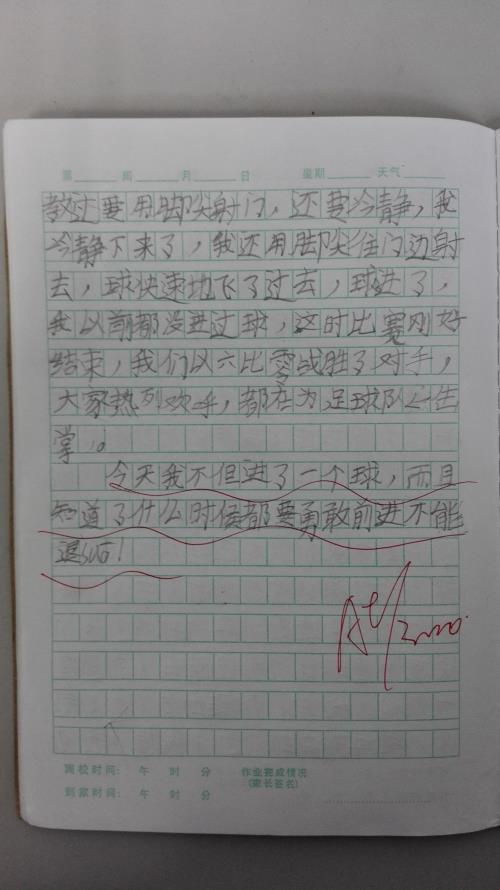 第 周 月 日 星期 天气
教过要用脚尖射门，还要冷静，我
冷静下来了，我还用脚尖往门边射
去，球快速地飞了过去，球进了，
我以前都没进过球，这时比赛刚好
结束，我们以六比零战胜了对手，
大家热烈欢呼，都在为足球队
掌。
今天我不但进了一个球，而且
知道了什么时候都要勇敢前进不能
退缩！
离校时间： 午 时 分 作业完成情况
(家长签名)
到家时间： 午 时 分